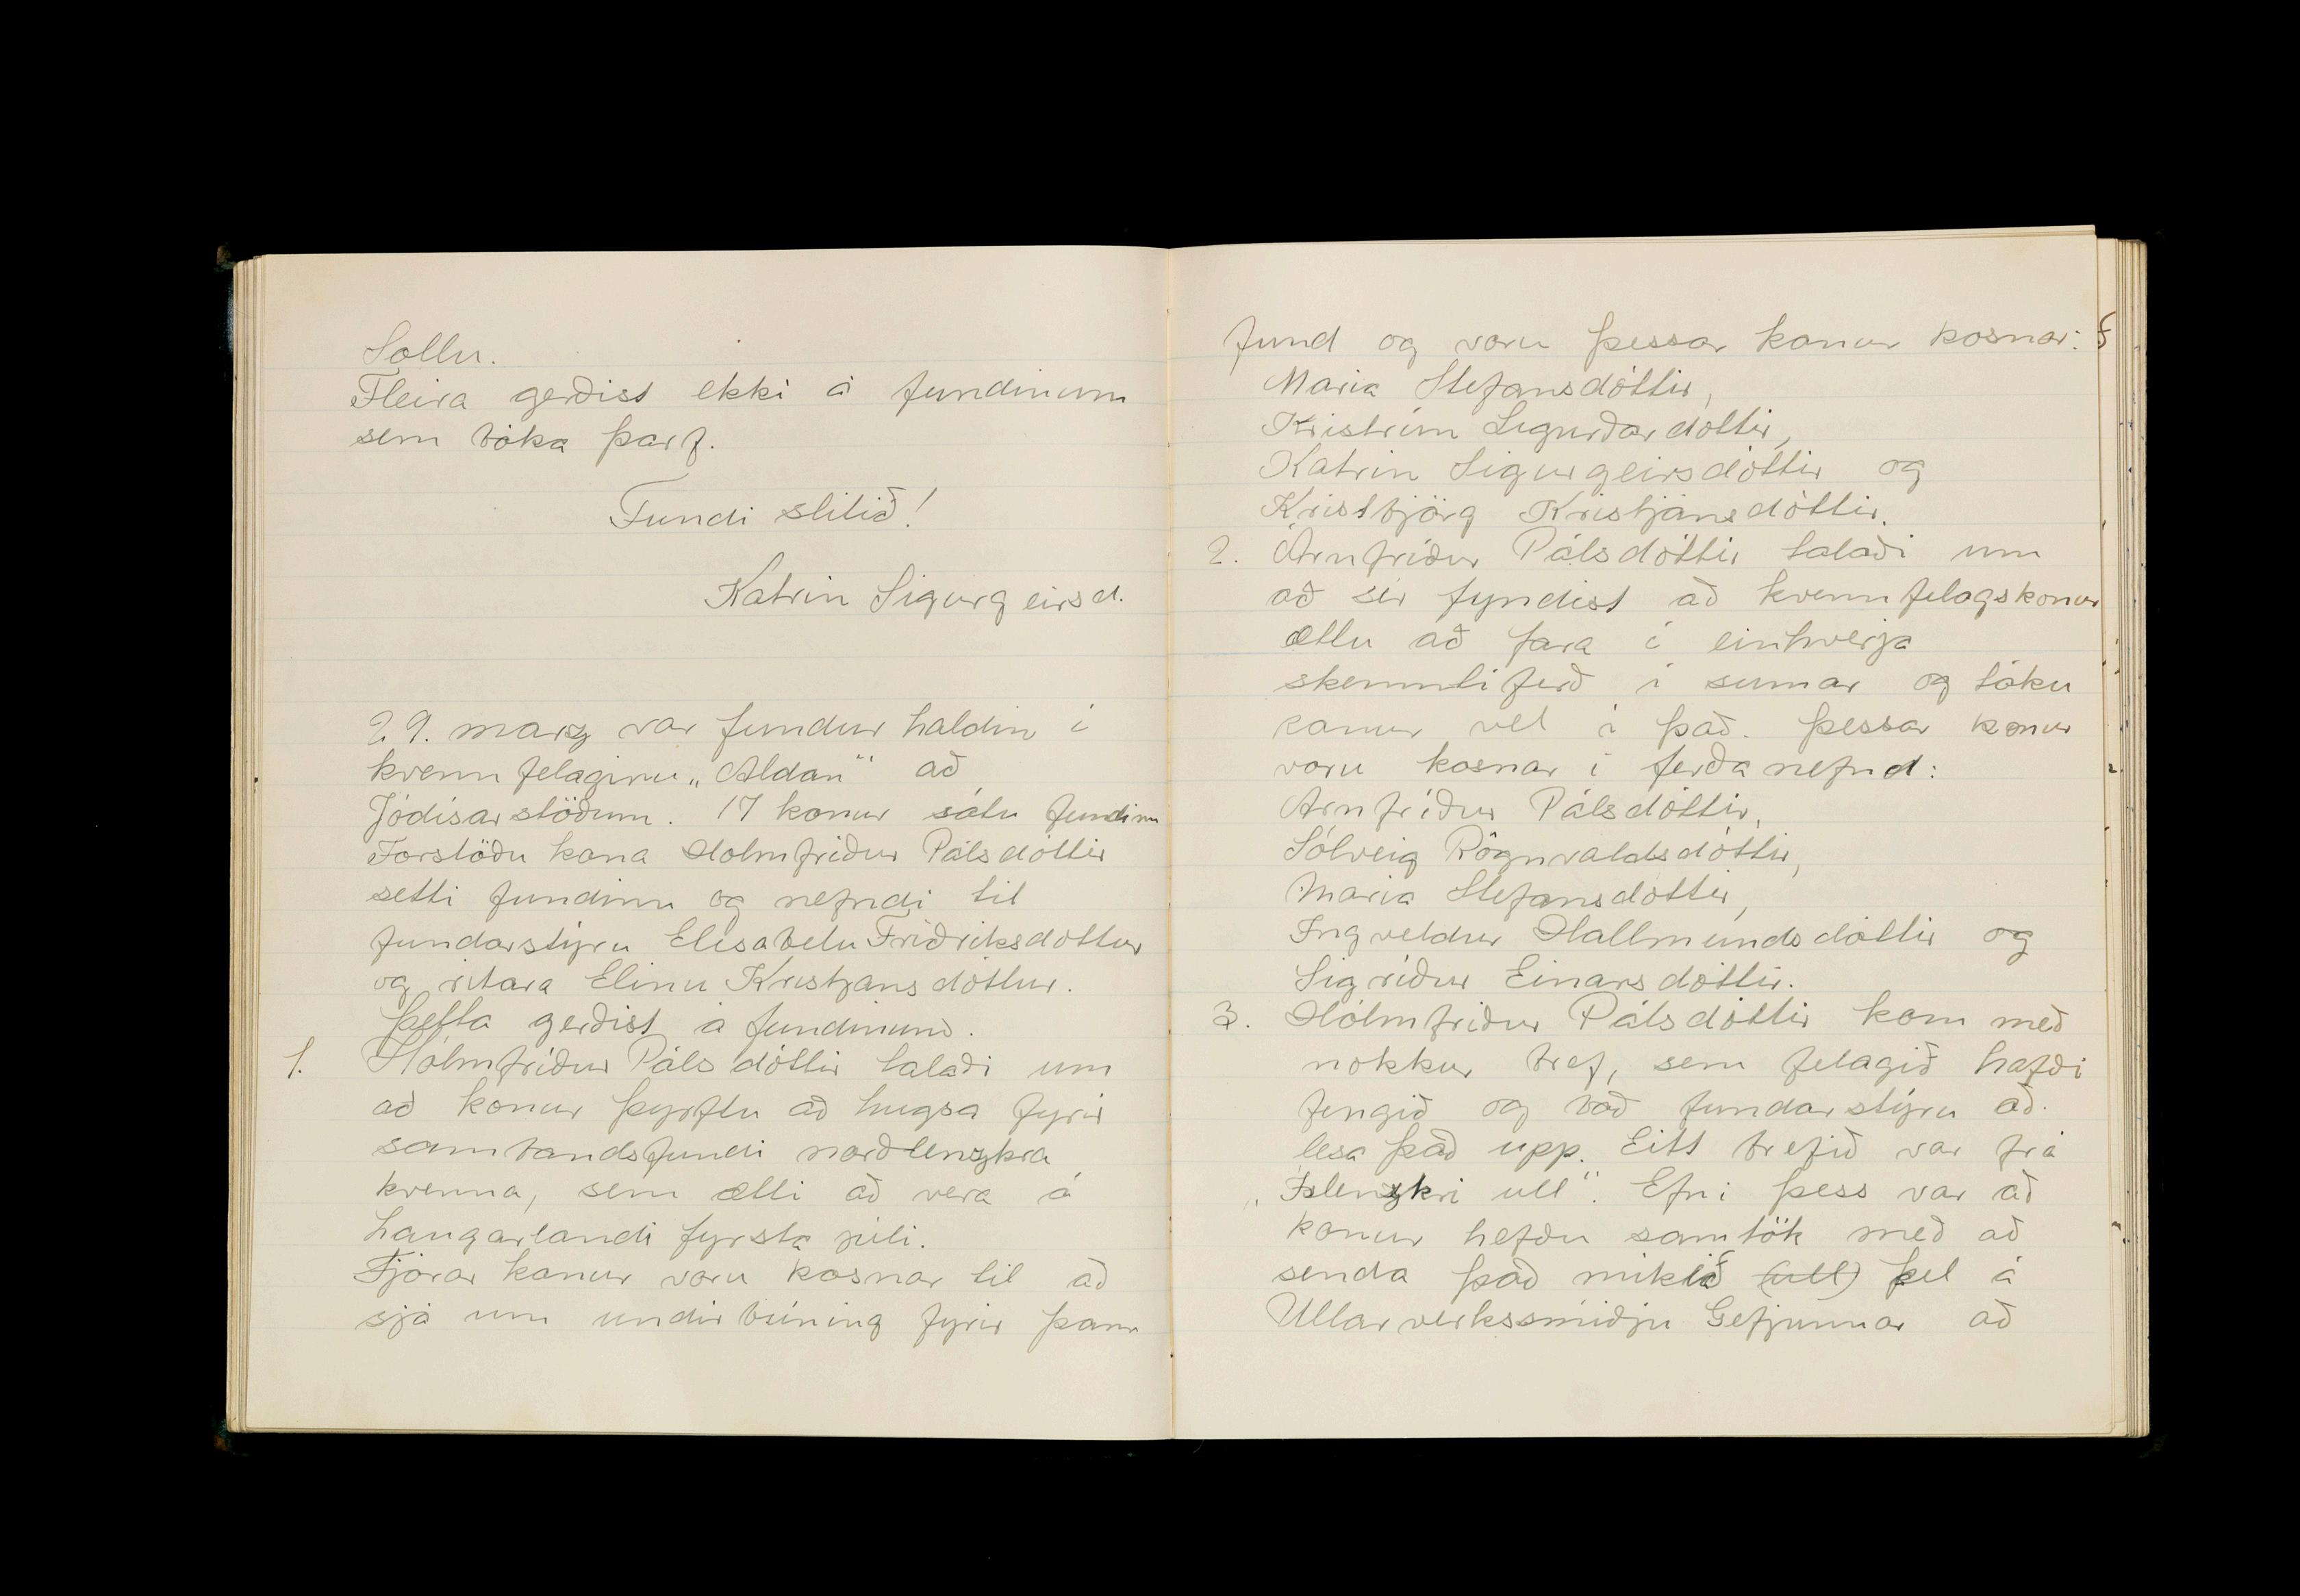 Sollu.
Fleira gerðist ekki á fundinum
sem bóka þarf.
Fundi slitið!
Katrin Sigurgeirsd.
29. marz var fundur haldin i
kvennfelaginu „Aldan" að
Jódísarstöðum. 17 konur sátu fundinn
Forstöðu kona Holmfriður Pálsdóttir
setti fundinn og nefndi til
fundarstýru Elisabetu Friðriksdottur
og ritara Elinu Kristjansdóttur.
Þetta gerðist á fundinum.
1. Hólmfriður Pálsdóttir talaði um
að konur þyrftu að hugsa fyrir
sambandsfundi norðlenzkra
kvenna, sem ætti að vera á
Laugarlandi fyrsta júli.
Fjórar konur voru kosnar til að
sjá um undirbúning fyrir þann
fund og voru þessar konur kosnar:
Maria Stefansdóttir,
Kristrún Sigurðardottir,
Katrin Sigurgeirsdóttir og
Kristbjörg Kristjánsdóttir.
2. Arnfriður Pálsdóttir talaði um
að sér fyndist að kvennfelagskonur
ættu að fara i einhverja
skemmtiferð i sumar og tóku
konur vel i það. Þessar konur
voru kosnar i ferðanefnd:
Arnfríður Pálsdóttir,
Sólveig Rögnvaldsdóttir,
Maria Stefansdóttir,
Ingveldur Hallmundsdóttir og
Sigriður Einarsdóttir.
3. Hólmfriður Pálsdóttir kom með
nokkur bref, sem felagið hafði
fengið og bað fundarstýru að
lesa það upp. Eitt brefið var frá
„Islenzkri ull". Efni þess var að
konur hefðu samtök með að
senda það mikið (ull) þel á
Ullarverkssmiðju Gefjunnar að